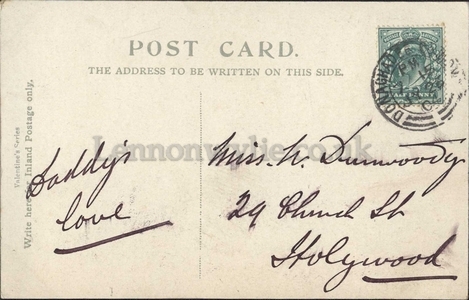 POST CARD.
THE ADDRESS TO BE WRITTEN ON THIS SIDE.
Valentine's Series
Write here for Inland Postage only.
Daddy's
love
Miss. W. Dunwoody
29 Church St
Holywood
HALFPENNY
Lennonwylie.co.uk